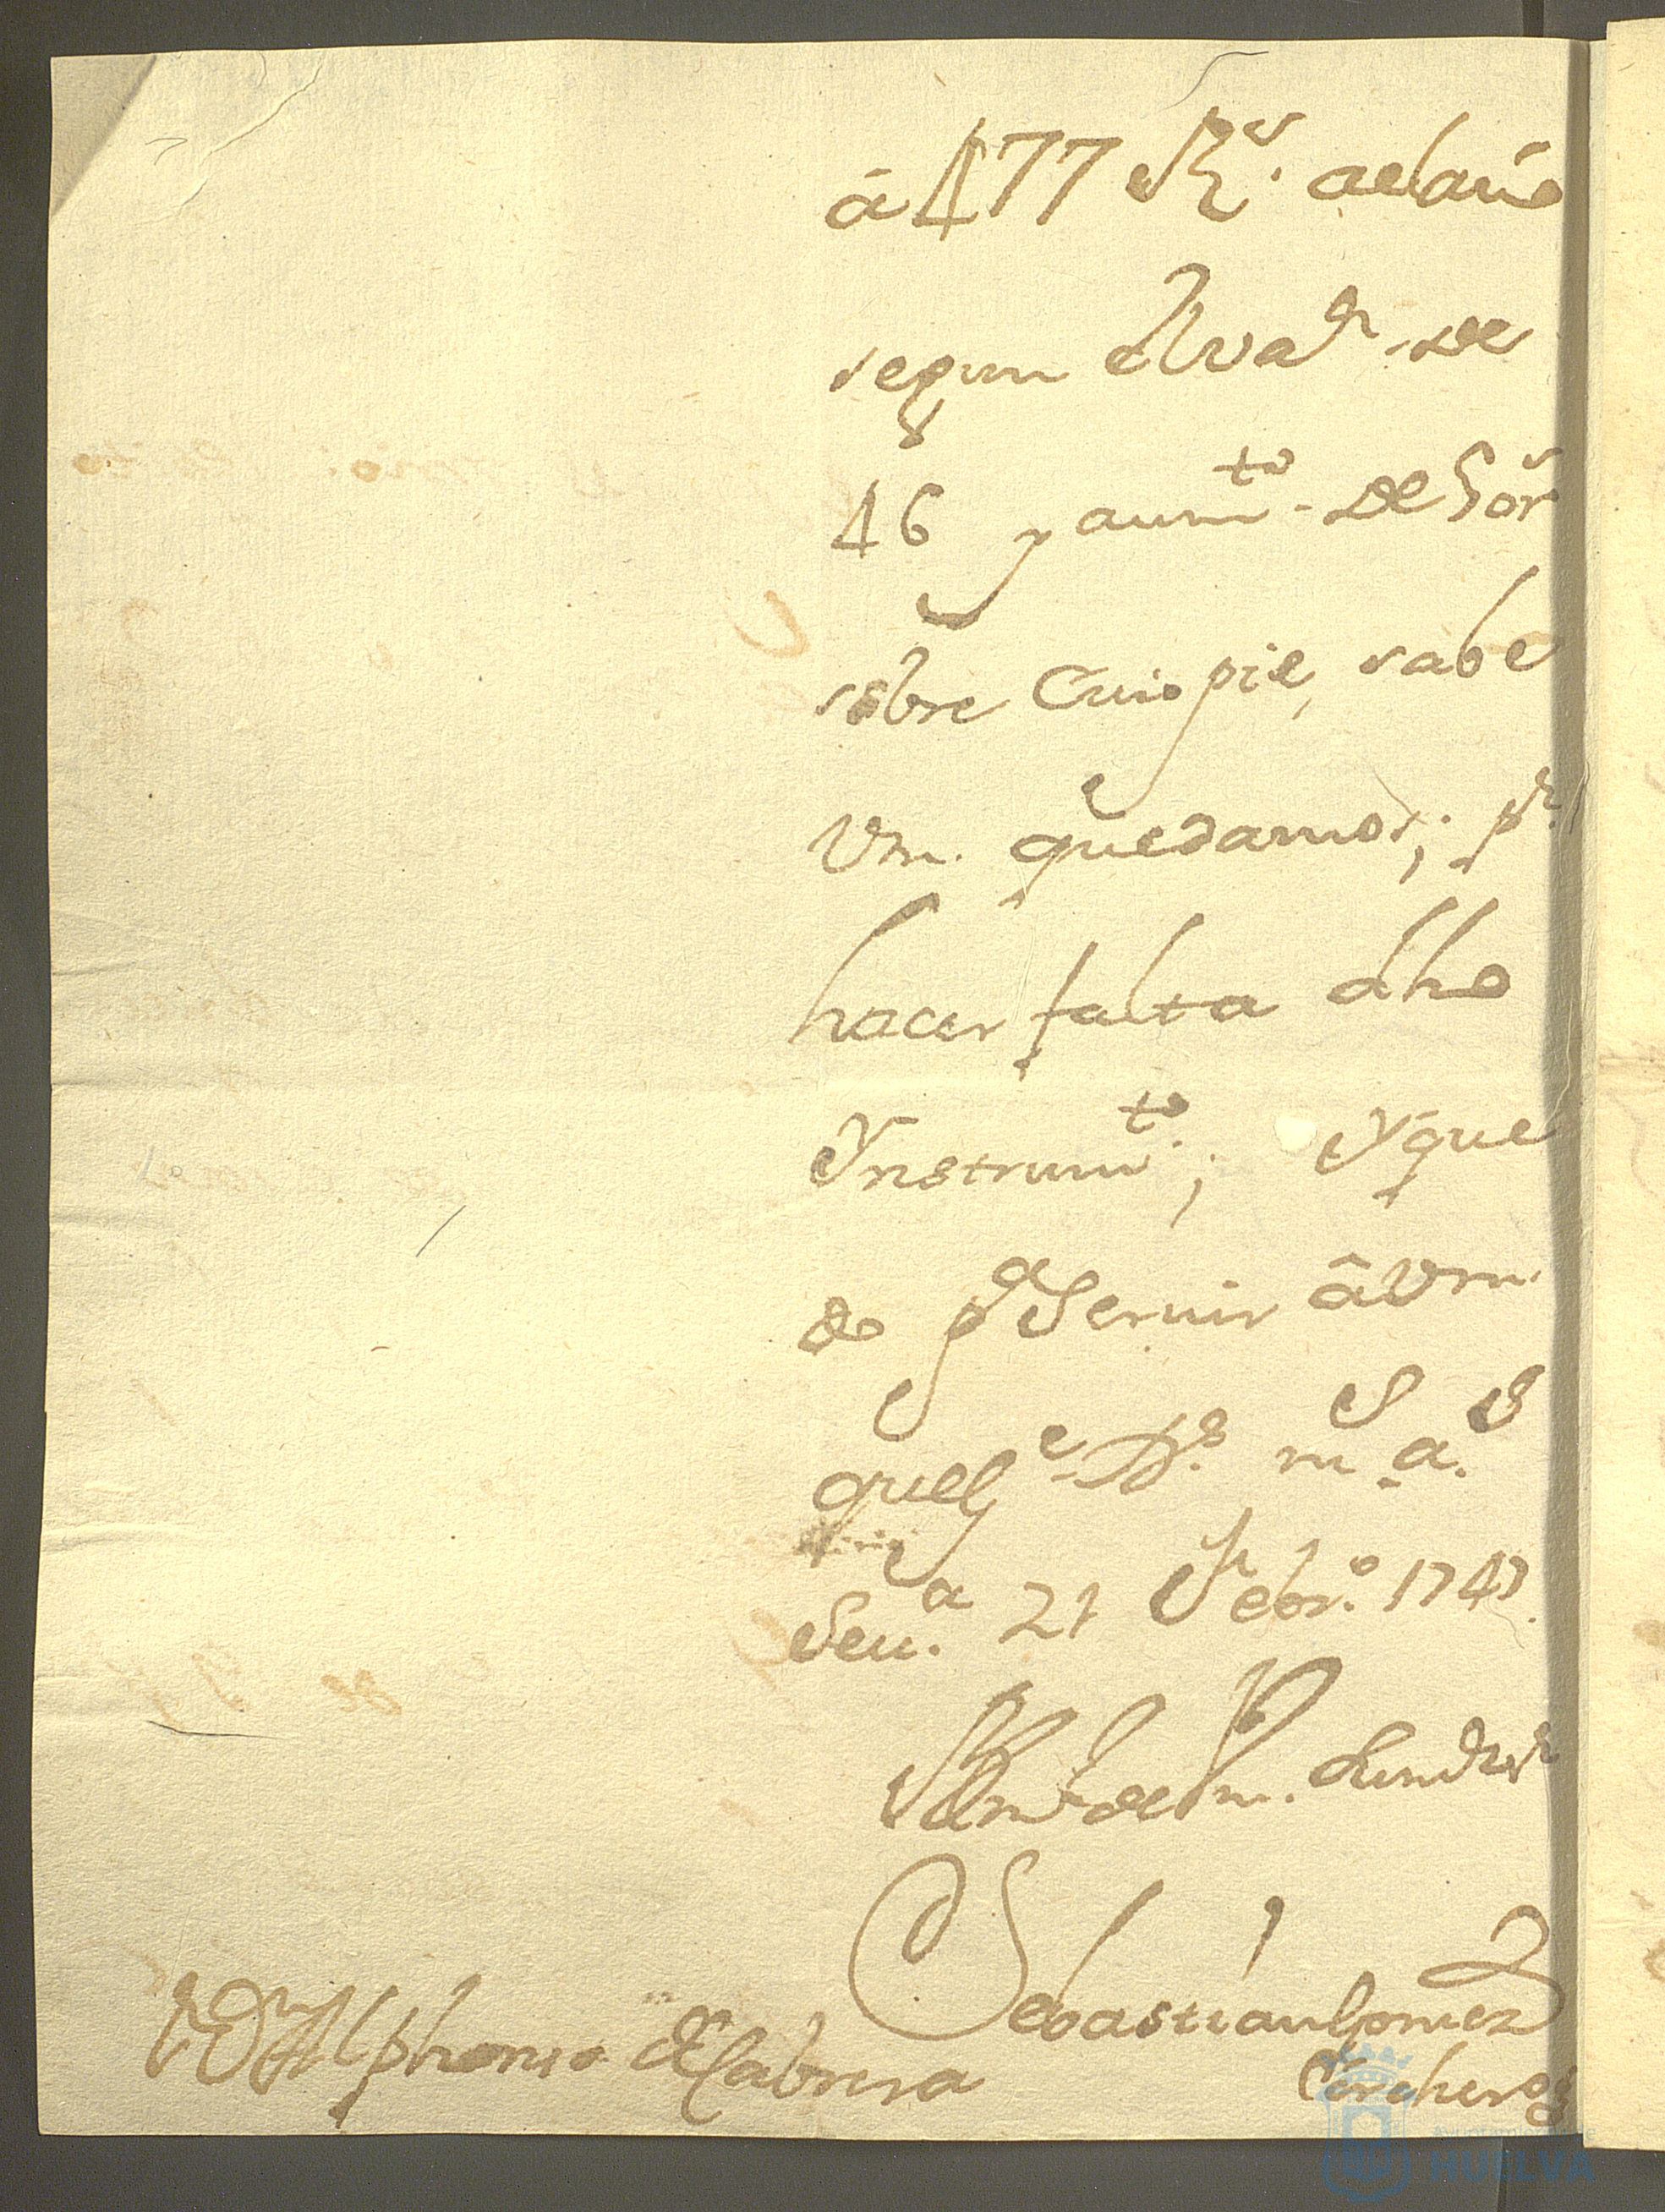 â 477 R.^s al año
segun el va^or. de
46 y aum^to. de Sor
sobre Cuio pie, sabe
Vm. quedamos; p^r.
hacer falta dho
Ynstrum^to.; Y que
do p^a Seruir â Vm
que g^e. D^s. m^s. a^s.
Seu^a. 21 Febr^o. 1747.
Sebastian Gomez
S^r D^n Alphonso de Cabrera
HUELVA